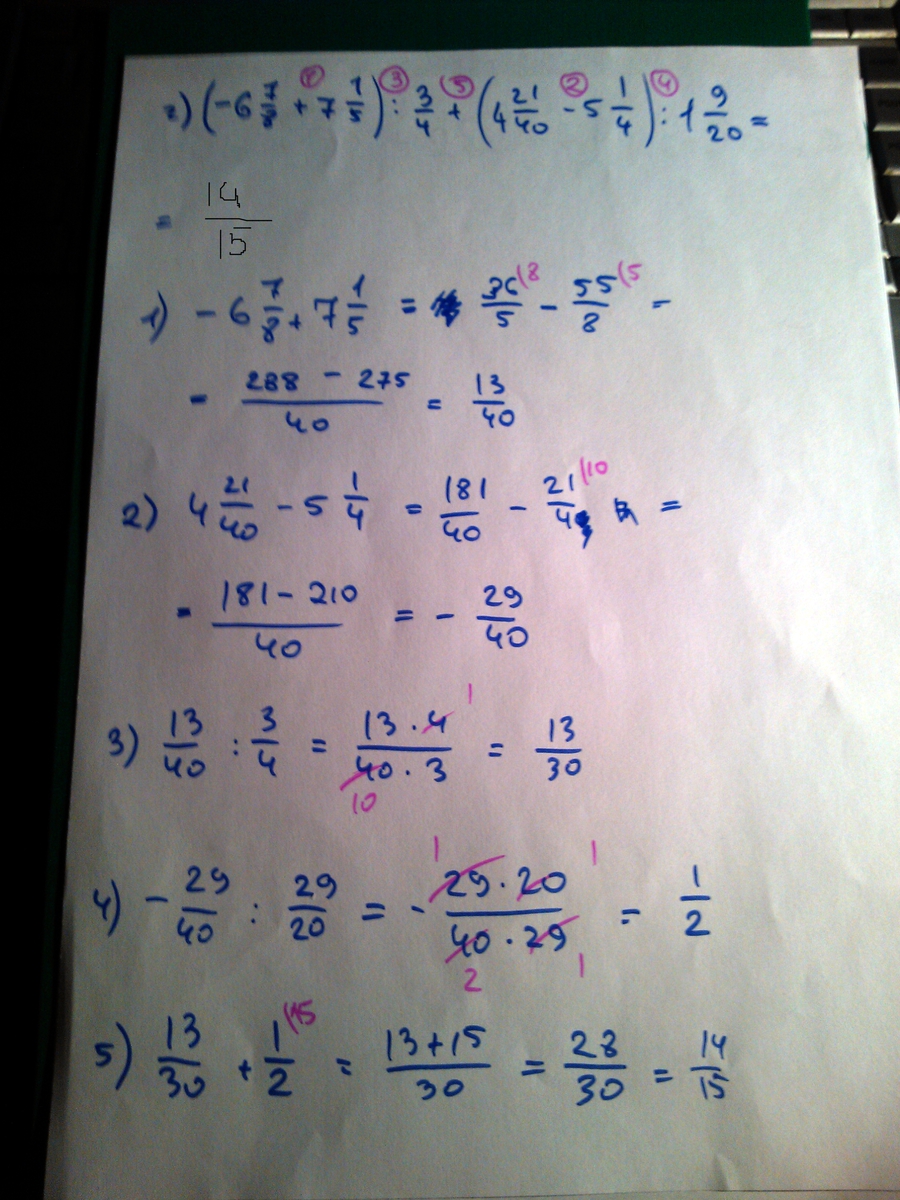 2) (-6 7/8 + 7 1/5) : 3/4 + (4 21/40 - 5 1/4) : 1 9/20 =
① ③ ⑤ ② ④
= 14/15
1) - 6 7/8 + 7 1/5 = 36/5 (8 - 55/8 (5 =
= 288 - 275/40 = 13/40
2) 4 21/40 - 5 1/4 = 181/40 - 21/4 (10 =
= 181 - 210/40 = - 29/40
3) 13/40 : 3/4 = 13 · 4/40 · 3 = 13/30
1
10
4) - 29/40 : 29/20 = - 29 · 20/40 · 29 = 1/2
1 1
2 1
5) 13/30 + 1/2 (15 = 13 + 15/30 = 28/30 = 14/15